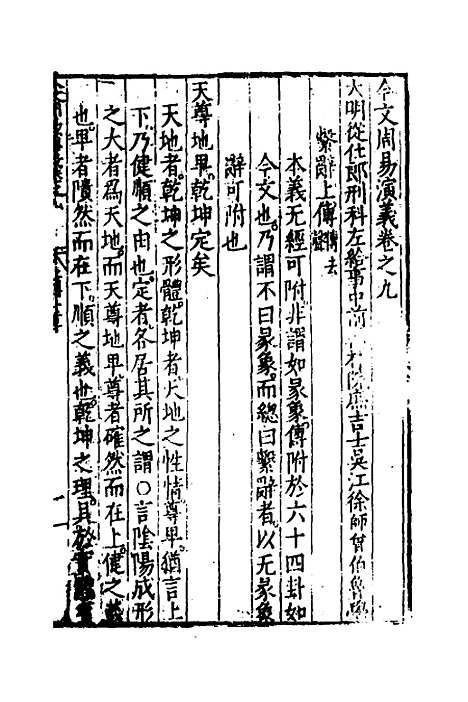 今文周易演義卷之九
大明從仕郎刑科左給事中前 庶吉士吳江徐師曾伯魯
繫辭上傳傳去聲
本義无經可附非謂如彖象傳附於六十四卦如
今文也乃謂不曰彖象而總曰繫辭者以无彖象
辭可附也
天尊地卑乾坤定矣
天地者乾坤之形體乾坤者天地之性情尊卑猶言上
下乃健順之由也定者各居其所之謂○言陰陽成形
之大者為天地而天尊地卑尊者確然而在上健之義
也卑者隤然而在下順之義也乾坤之理具於